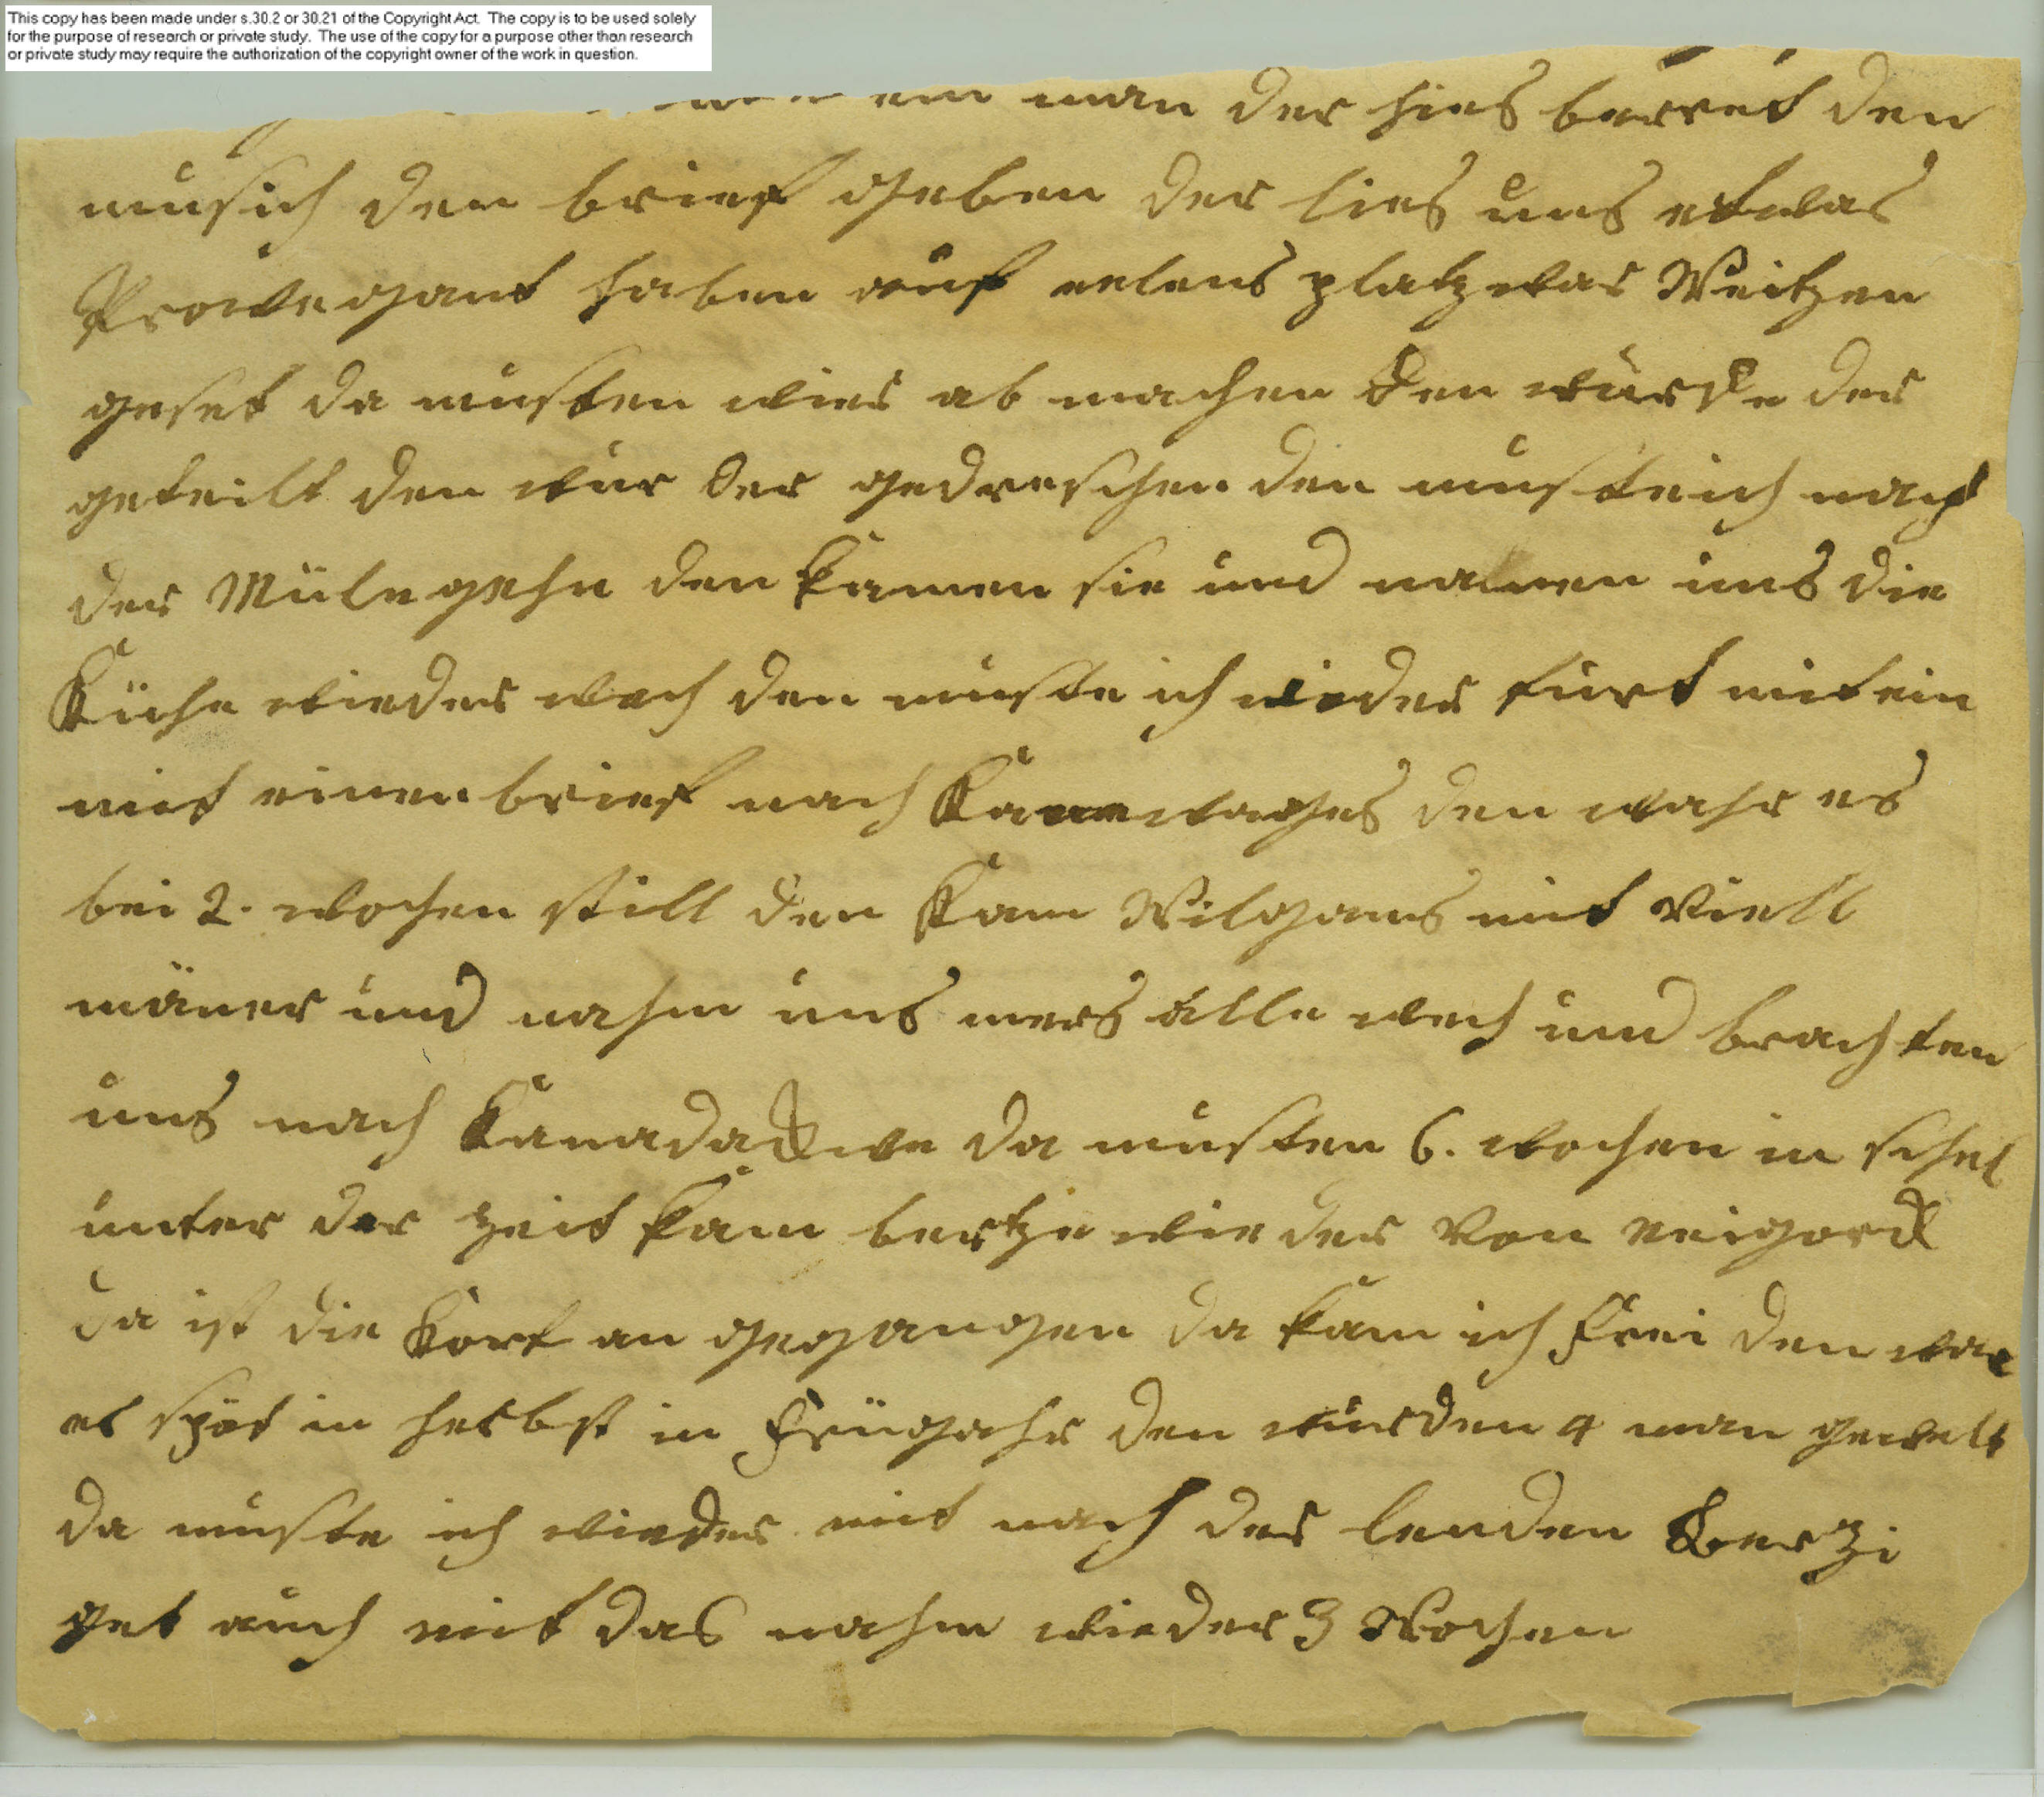 This copy has been made under s.30.2 or 30.21 of the Copyright Act. The copy is to be used solely
for the purpose of research or private study. The use of the copy for a purpose other than research
or private study may require the authorization of the copyright owner of the work in question.
ein man der hies berret den
musich den brief geben der lies uns etwas
Prowegant haben auf elens platz war Weitzen
geset da musten wier ab machen den würde der
geteilt den wur der gedreschen den musteich nach
der Müle gehn den kamen sie und namen uns die
Kühe wieder wech den muste ich wieder furt mit ein
mit einen brief nach den wahr es
bei 2. wochen still den kam Wilgams mit viell
mäner und nahm uns mers alle wech und brachten
uns nach Kanadackwe da musten 6. wochen in schel
unter der zeit kam bertze wieder von neigorck
da ist die Kort an gegangen da kam ich frei den war
es spät in herbst in früjahr den wurden 4 man gewelt
da muste ich wieder mit nach der lenden Berzi
get auch mit das nahm wieder 3 Wochen